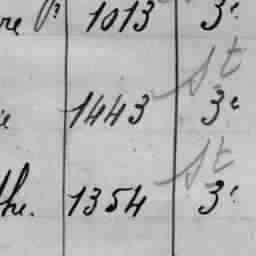 re 1013 3e
St
e 1443 3e
St
the. 1354 3e